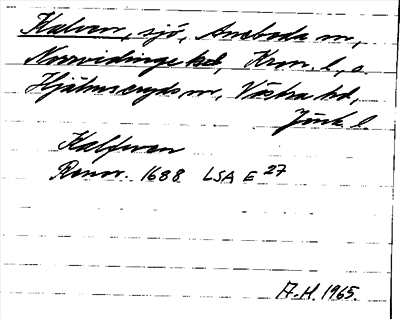 Kalven, sjö, Aneboda sn,
Norrvidinge hd, Kron. l., o.
Hjälmseryds sn, Västra hd,
Jönk. l.
Kalfwen
Renov. 1688 LSA E 27
A.H. 1965.